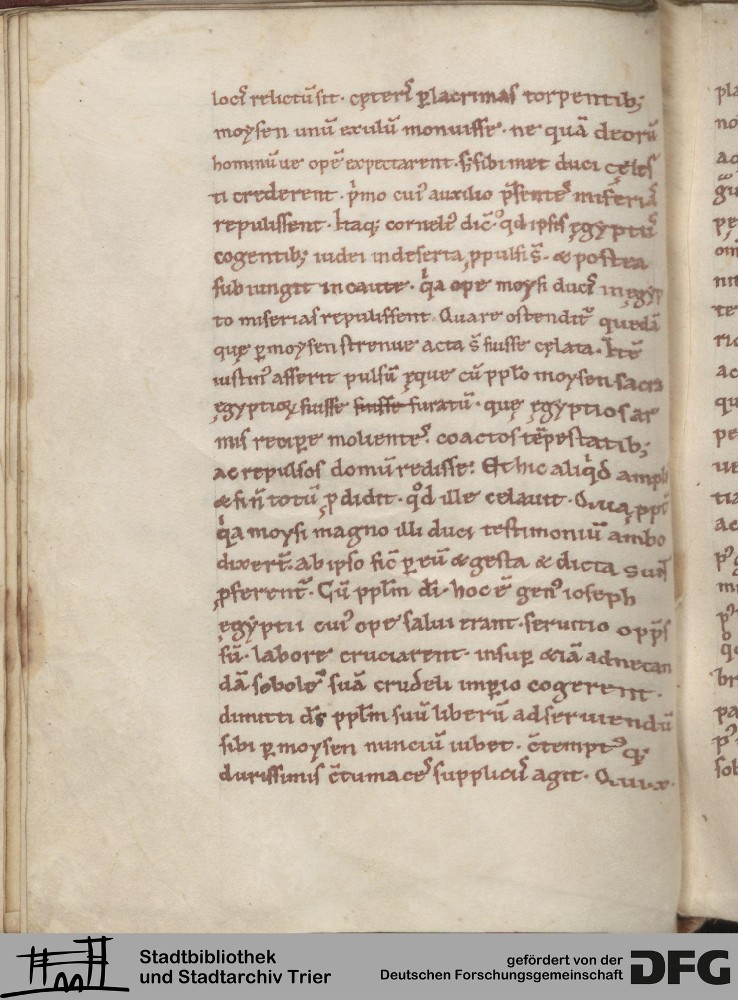 loci relictū sit · cęteriſ ꝑ lacrimaſ torpentib;
moyſen unū exulū monuiſſe · ne quā deorū
hominū ue opē expectarent · ſꝫ ſibimet duci cęleſ
ti crederent · p̄mo cui᾽ auxilio p̄ſenteſ miſeriaſ
repuliſſent · Itaq; corneli᾽ dic̄ · qd ipſiſ ęgyptiiſ
cogentib; iudei in deſerta ꝓpulſi ſ̄ · & poſtea
ſubiungit incaute · qa ope moyſi duciſ in ęgyp
to miſeriaſ repuliſſent · Quare oſtendit᾽ quedā
quę ꝑ moyſen ſtrenue acta ſ̄ fuiſſe cęlata · Itē
iuſtin᾽ aſſerit pulſū ęque cū ppło moyſen · ſacra
ęgyptioꝝ fuiſſe fuiſſe furatū · quę ęgyptioſ ar
miſ recipe molienteſ · coactoſ tēpeſtatib;
ac repulſoſ domū rediſſe · Et hic aliqd ampli᾽
& ſi n̄ totū ꝓdidit · qd ille celauit · Qua ꝓpt᾽
qa moyſi magno illi duci teſtimoniū ambo
dixert̄ · ab ipſo ſic ꝑ eū & geſta & dicta ſunt
ꝓferent᾽ · Cū pplm di · hoc ē gen᾽ ioſeph
ęgyptii cui᾽ ope ſalui erant · ſeruitio oppreſ
ſū · labore cruciarent · inſuꝑ & iā ad necan
dā ſobolē ſuā crudeli imꝑio cogerent ·
dimitti dſ pplm ſuū liberū ad ſeruiendū
ſibi ꝑ moyſen nunciū iubet · c̄tempt᾽ q;
duriſſimiſ c̄tumaceſ ſuppliciiſ agit ·
Stadtbibliothek
und Stadtarchiv Trier
gefördert von der
Deutschen Forschungsgemeinschaft
DFG